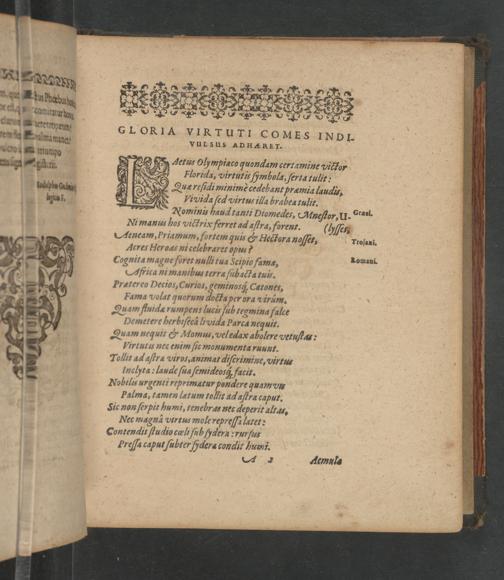 GLORIA VIRTUTI COMES INDI-
VULSUS ADHÆRET.
LAetus Olympiaco quondam certamine victor
Florida, virtutis symbola, serta tulit:
Quæ residi minimè cedebant præmia laudis,
Vivida sed virtus illa brabea tulit.
Nominis haud tanti Diomedes, Mnestor, U- Græci.
Ni manus hos victrix ferret ad astra, forent. (lysses,
Aeneam, Priamum, fortem quis & Hectora nosset, Trojani.
Acres Heroas ni celebraret opus?
Cognita magne foret nulli tua Scipio fama, Romani.
Africa ni manibus terra subacta tuis.
Prætereo Decios, Curios, geminosq́; Catones,
Fama volat quorum docta per ora virûm.
Quam fluidæ rumpens lucis sub tegmina falce
Demetere herbisecâ livida Parca nequit.
Quam nequit & Momus, vel edax abolere vetustas:
Virtutis nec enim sic monumenta ruunt.
Tollit ad astra viros, animat discrimine, virtus
Inclyta: laude sua semideosq́; facit.
Nobilis urgenti reprimatur pondere quamvis
Palma, tamen latum tollit ad astra caput.
Sic non serpit humi, tenebras nec deperit altas,
Nec magnâ virtus mole repressa latet:
Contendit studio cœli sub sydera: rursus
Pressa caput subter sydera condit humi.
A 2 Aemula